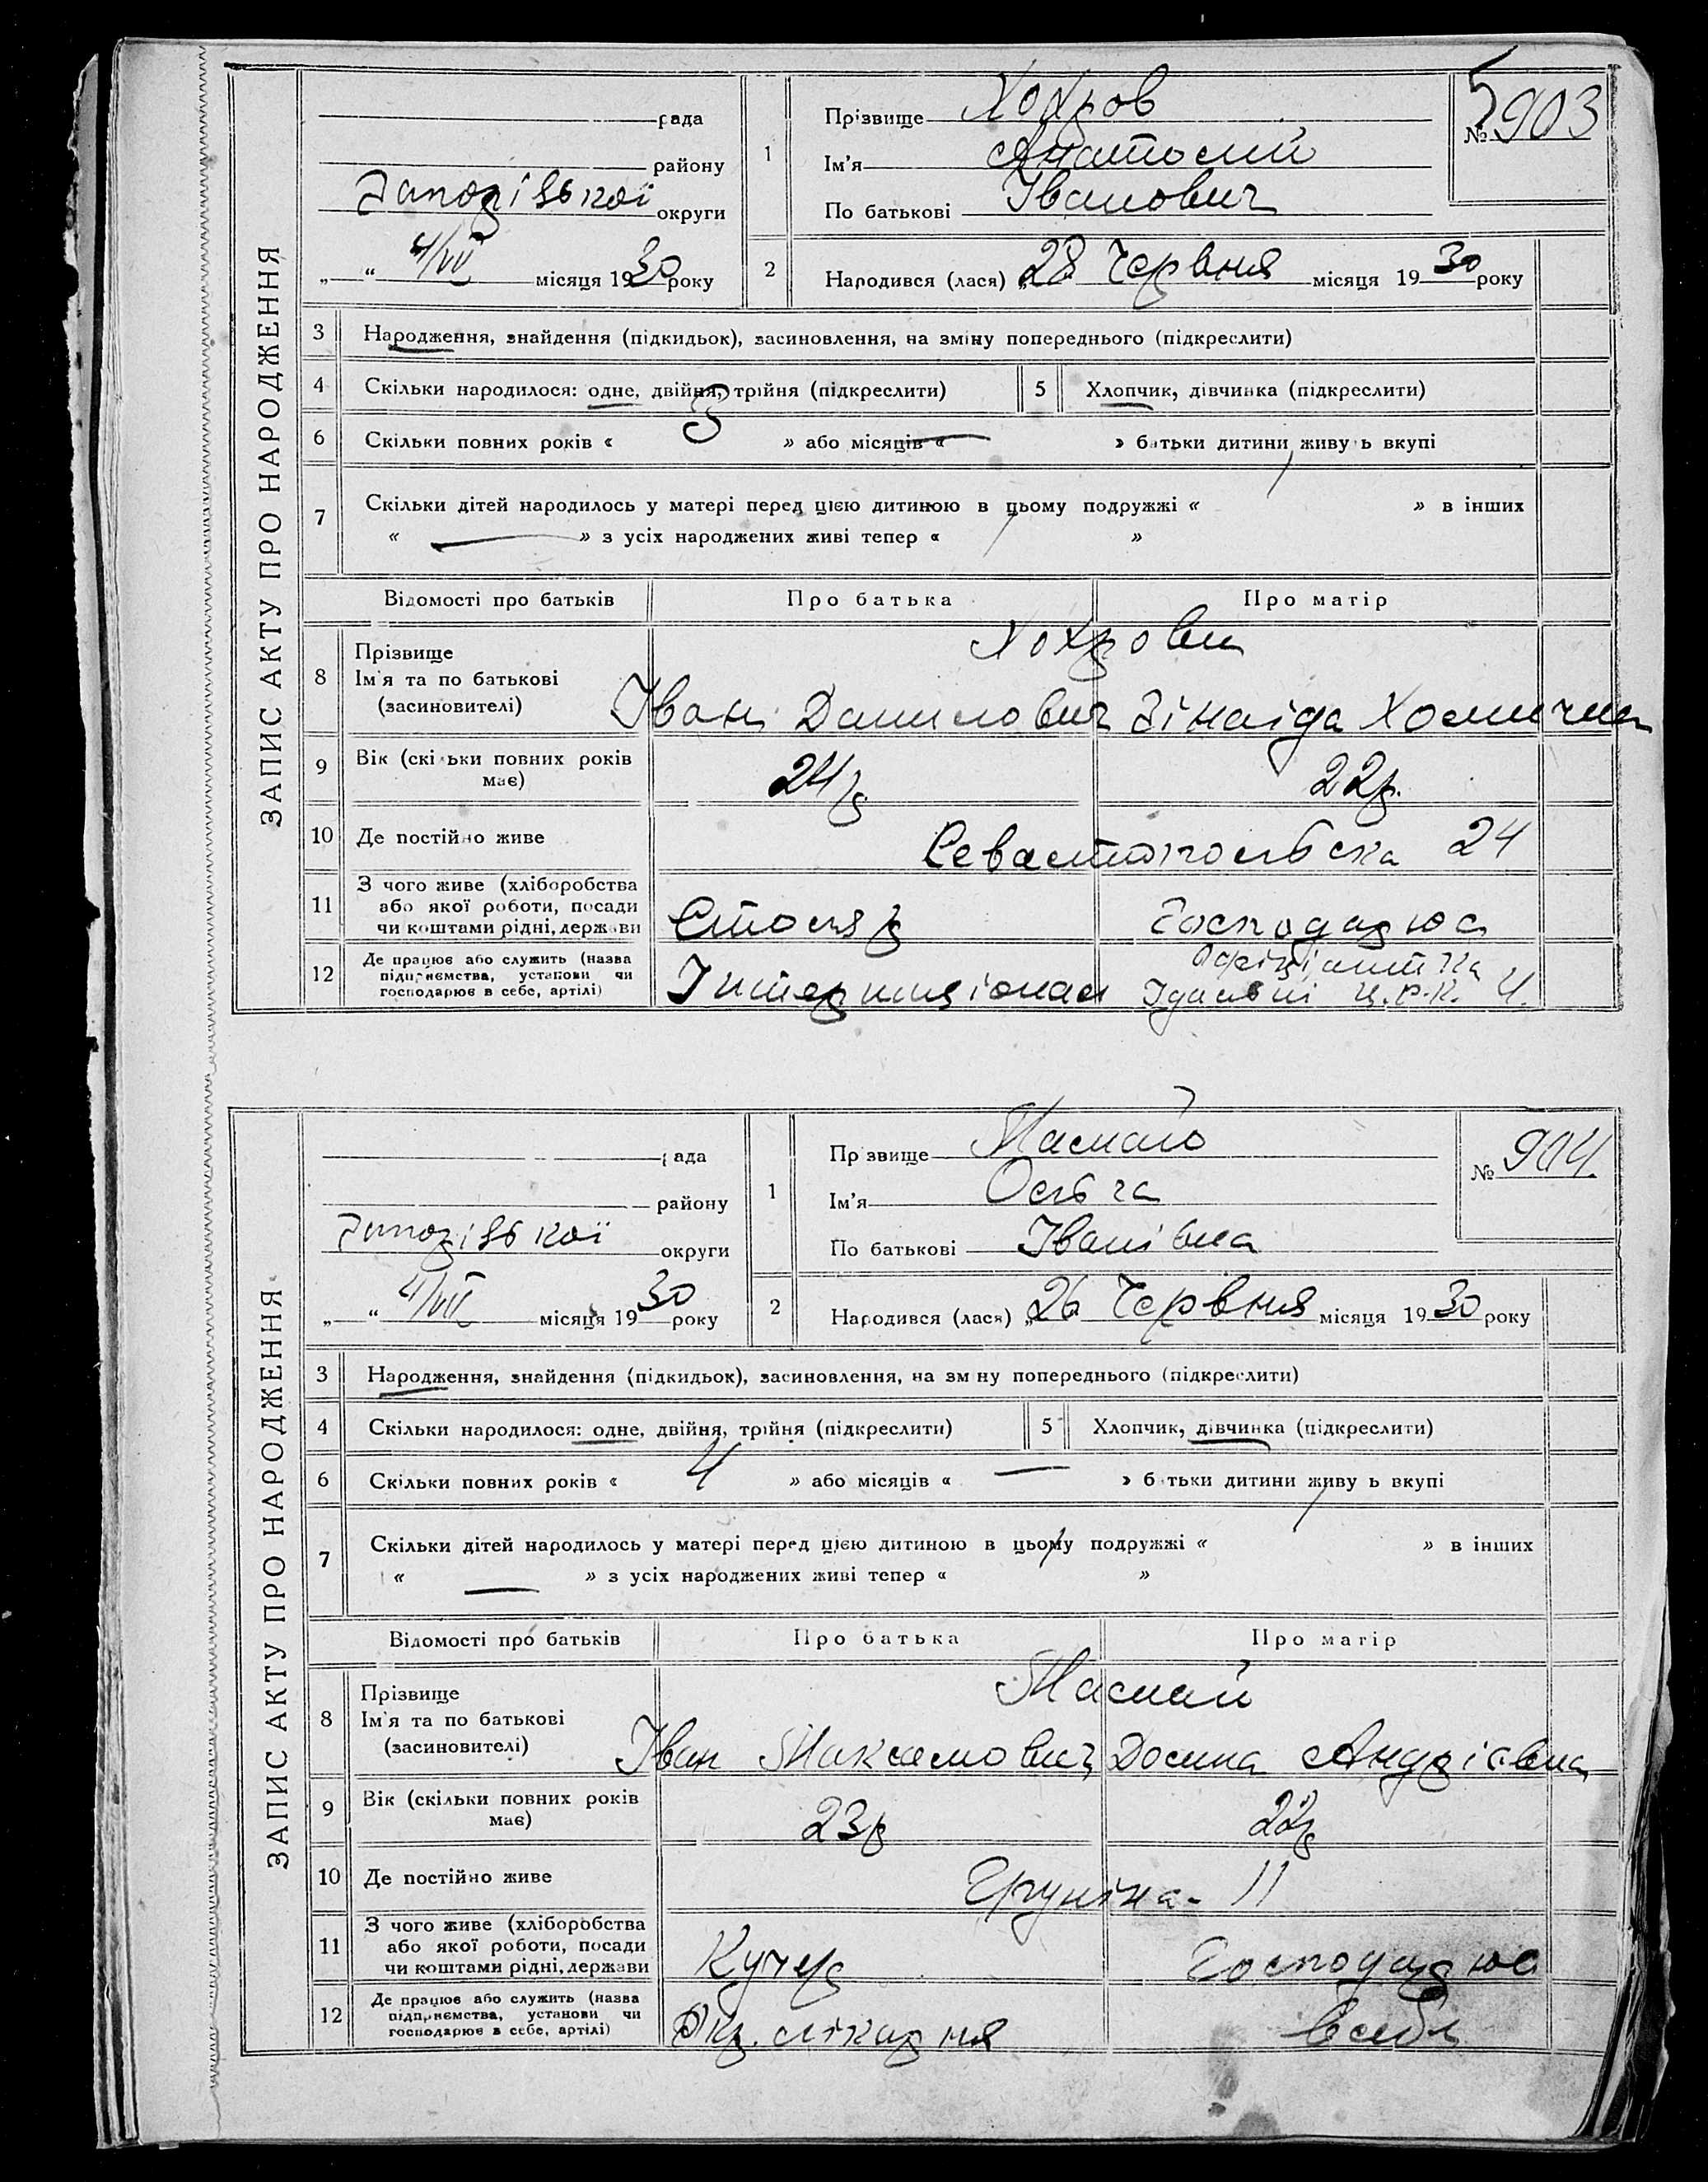 ЗАПИС АКТУ ПРО НАРОДЖЕННЯ
рада
району
Запорізької округи
„ “ 4/VII місяця 1930 року
1
Прізвище Хохров
Ім'я Анатолий
По батькові Іванович
№ 903
5
2
Народився (лася) „28 Червня місяця 1930 року
3 Народження, знайдення (підкидьок), засиновлення, на зміну попереднього (підкреслити)
4 Скільки народилося: одне, двійня, трійня (підкреслити)
5 Хлопчик, дівчинка (підкреслити)
6 Скільки повних років « 3 » або місяців « — » батьки дитини живу ь вкупі
7 Скільки дітей народилось у матері перед цією дитиною в цьому подружжі « » в інших
« — » з усіх народжених живі тепер « »
Відомості про батьків Про батька Про матір
8 Прізвище
Ім'я та по батькові
(засновителі)
Хохрови
Іван Данилович Зінаіда
9 Вік (скі ьки повних років
має)
24 р 22 р.
10 Де постійно живе
Севастопольска 24
11 З чого живе (хліборобства
або якої роботи, посади
чи коштами рідні, держави
Столяр Господарює
12 Де працює або служить (назва
підприємства, установи чи
господарює в себе, артілі)
Інтернаціонал
Офіціантка
Ідальні Ц.Р.К. 4.
ЗАПИС АКТУ ПРО НАРОДЖЕННЯ
рада
району
Запорізької округи
„ “ 4/VII місяця 1930 року
1
Пр звище
Ім'я Ольга
По батькові Іванівна
№ 904
2
Народився (лася) „26 Червня місяця 1930 року
3 Народження, знайдення (підкидьок), засиновлення, на зм ну попереднього (підкреслити)
4 Скільки народилося: одне, двійня, трійня (підкреслити)
5 Хлопчик, дівчинка (підкреслити)
6 Скільки повних років « 4 » або місяців « — » б тьки дитини живу ь вкупі
7 Скільки дітей народилось у матері перед цією дитиною в цьому подружжі « » в інших
« — » з усіх народжених живі тепер « »
Відомості про батьків Про батька Про матір
8 Прізвище
Ім'я та по батькові
(засиновителі)
Іван Максимович Андріївна
9 Вік (скільки повних років
має)
23 р 22 р
10 Де постійно живе
11
11 З чого живе (хліборобства
або якої роботи, посади
чи коштами рідні, держави
Кучер Господарює
12 Де працює або служить (назва
підприємства, установи чи
господарює в себе, артілі)
Окр. лікарня в себе